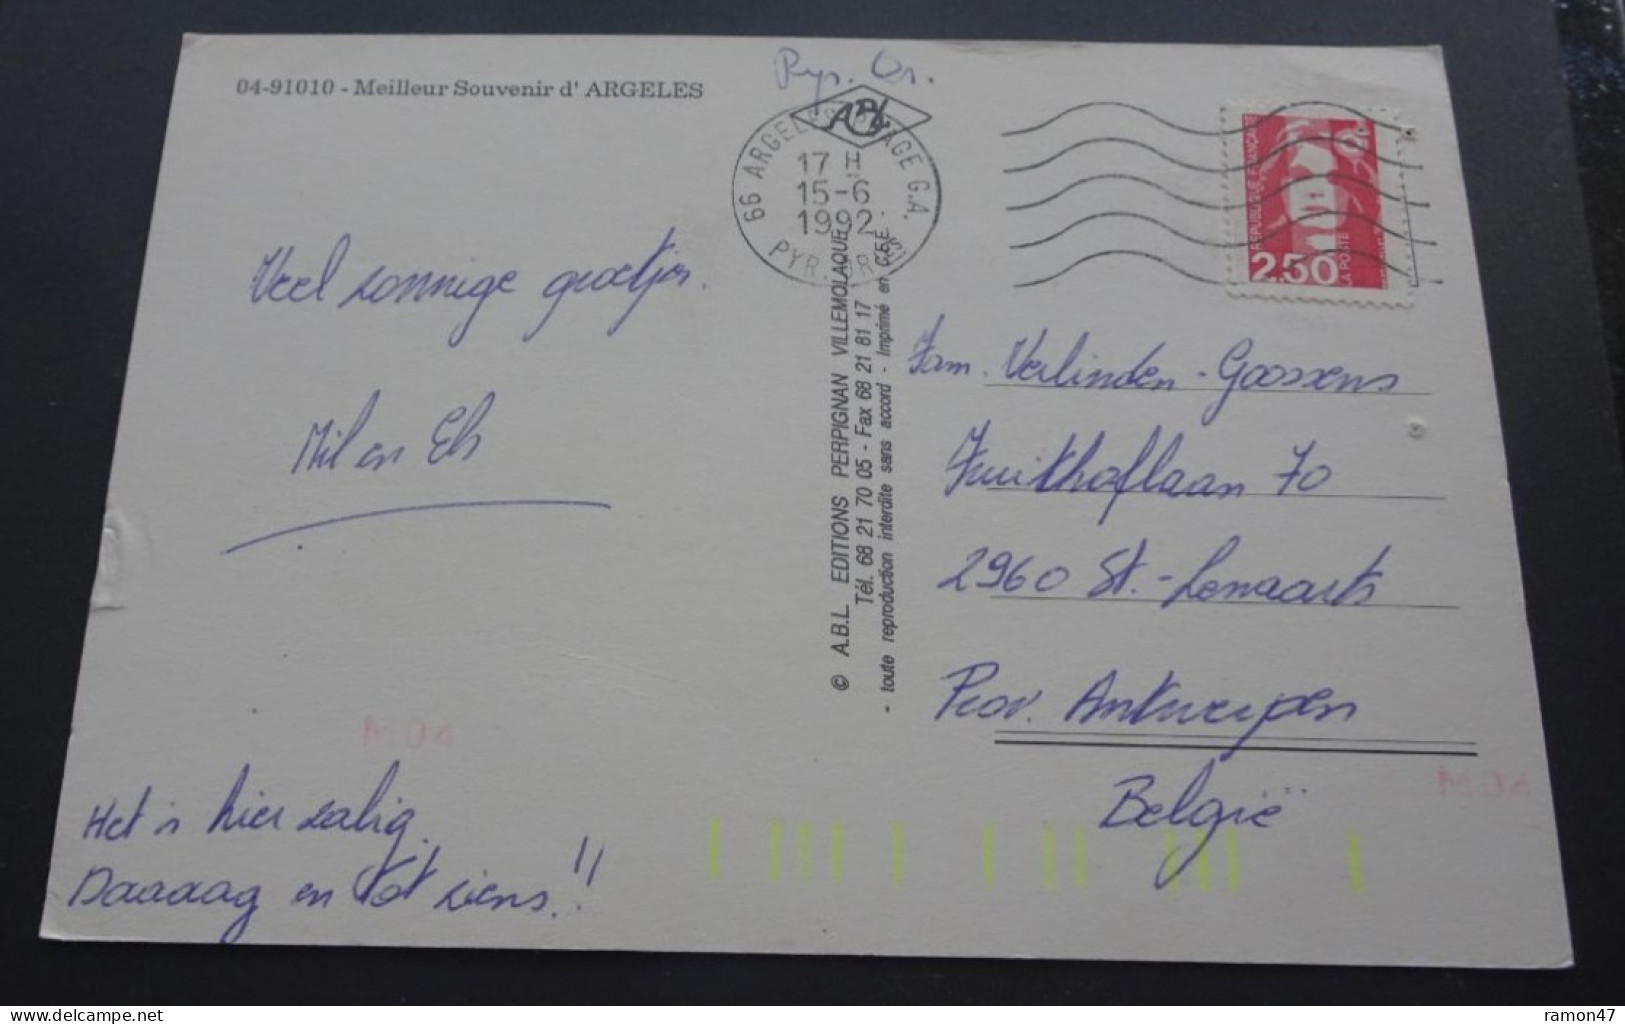 Pyr. Or.
04-91010 - Meilleur Souvenir d' ARGELES
ABL
66 ARGELES PLAGE G.A.
17 H
15-6
1992
PYR. ORLES
REPUBLIQUE FRANÇAISE
2,50
LA POSTE
Veel zonnige groetjes.
Mil en Els
Het is hier zalig.
Daaaaag en tot ziens!!
© A.B.L. EDITIONS PERPIGNAN VILLEMOLAQUE
Tél. 68 21 70 05 - Fax 68 21 81 17
- toute reproduction interdite sans accord - Imprimé en C.E.E.
Fam. Verlinden - Goossens
Fruithoflaan 70
2960 St.-Lenaarts
Prov. Antwerpen
België
M04
M04
delcampe.net
ramon47